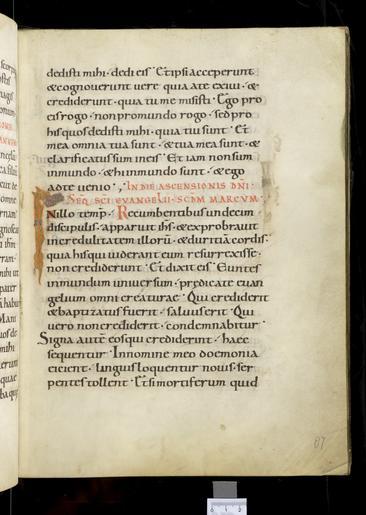 dedisti mihi · dedi eis · Et ipsi acceperunt
& cognoverunt vere quia a te exivi · &
crediderunt · quia tu me misisti · Ego pro
eis rogo · non pro mundo rogo · sed pro
his quos dedisti mihi · quia tui sunt · Et
mea omnia tua sunt · & tua mea sunt · &
clarificatus sum in eis · Et iam non sum
in mundo · & hi in mundo sunt · & ego
ad te venio · IN DIE ASCENSIONIS DNI ·
SEQ SCI EVANGELII · SCDM MARCUM
N illo temp · Recumbentibus undecim
discipulis · apparuit ihs · & exprobravit
incredulitatem illorū · & duritiā cordis ·
quia his qui viderant eum resurrexisse ·
non crediderunt · Et dixit eis · Euntes
in mundum universum · predicate evan
gelium omni creaturae · Qui crediderit
& baptizatus fuerit · salvus erit · Qui
vero non crediderit · condemnabitur ·
Signa autē eos qui crediderint · haec
sequentur · In nomine meo daemonia
eicient · linguis loquentur novis · ser
pentes tollent · Et si mortiferum quid
87